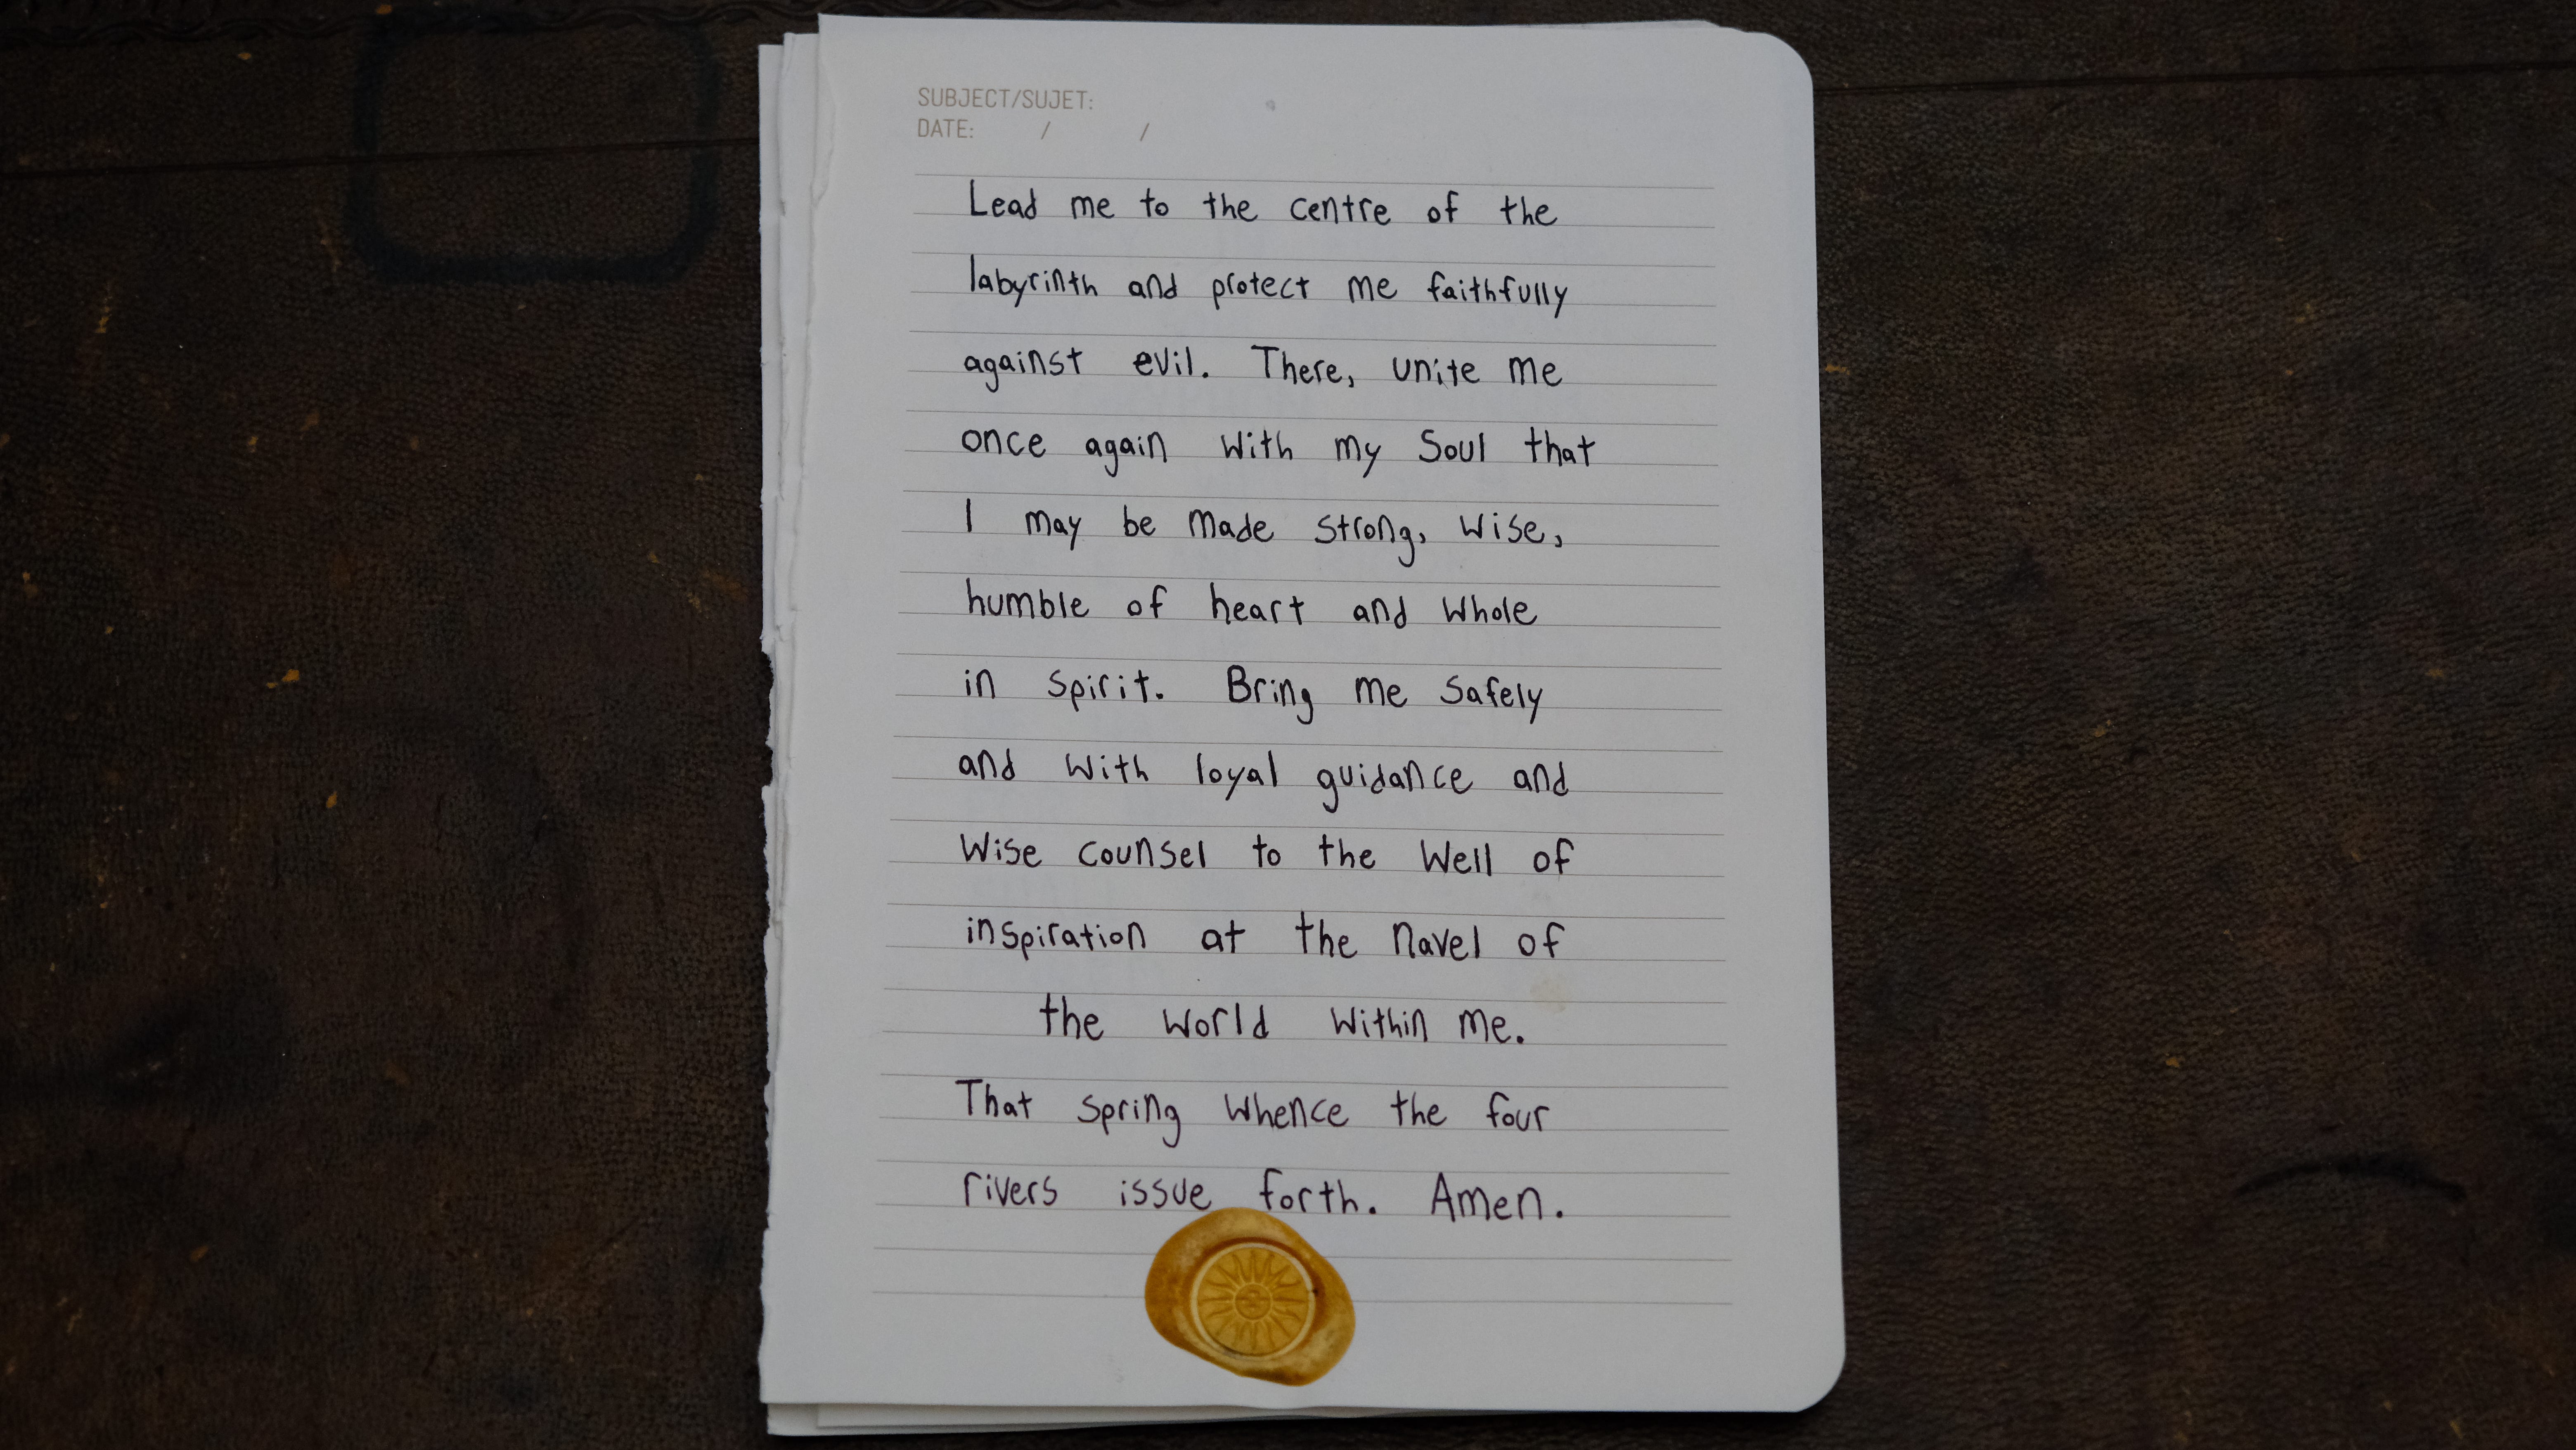 SUBJECT/SUJET:
DATE: / /
Lead me to the centre of the
labyrinth and protect me faithfully
against evil. There, unite me
once again with my Soul that
I may be made strong, wise,
humble of heart and whole
in spirit. Bring me safely
and with loyal guidance and
wise counsel to the Well of
inspiration at the navel of
the world within me.
That spring whence the four
rivers issue forth. Amen.